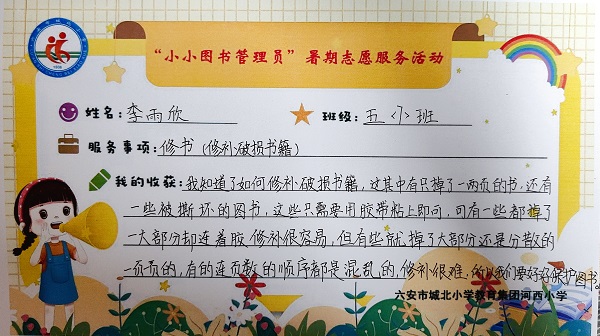 “小小图书管理员”暑期志愿服务活动
姓名:李雨欣 班级:五(4)班
服务事项:修书(修补破损书籍)
我的收获:我知道了如何修补破损书籍,这其中有只掉了一两页的书,还有
一些被撕坏的图书,这些只需要用胶带粘上即可,可有一些都掉了
一大部分却连着胶修补很容易,但有些就掉了大部分还是分散的
一页页的,有的连页数的顺序都是混乱的,修补很难,所以我们要好好保护图书。
六安市城北小学教育集团河西小学